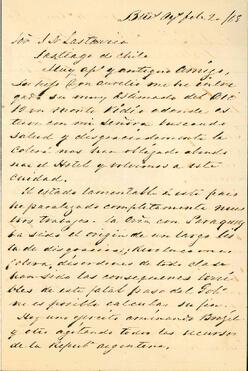 Buen Ay. Feb. 2/
Sor. J. V. Lastarria
Santiago de Chile
Muy apo. y antiguo Amigo,
Su hijo Don Aurelio me ha
gado su muy estimada del Dic
10 en Monte Video adonde es
tuve con mi Señora buscando
Salud y desgraciadamente la
Colera nos han obligado aband
nar el Hotel y volvimos a esta
Ciudad.
El estado lamentable de este pais
ha paralizado completamente nues
tros trabajos. La con Paraguay
ha sido el origen de un largo lis
ta de desgracias, Revoluciones
Colera, disordenes de toda clase
han sido las consequencias terri
bles de este fatal paso del Gob.
no es posible calcular su fin.
Hay un ejercito caminando
y otro agotando todos los recursos
de la Repub. argentina.